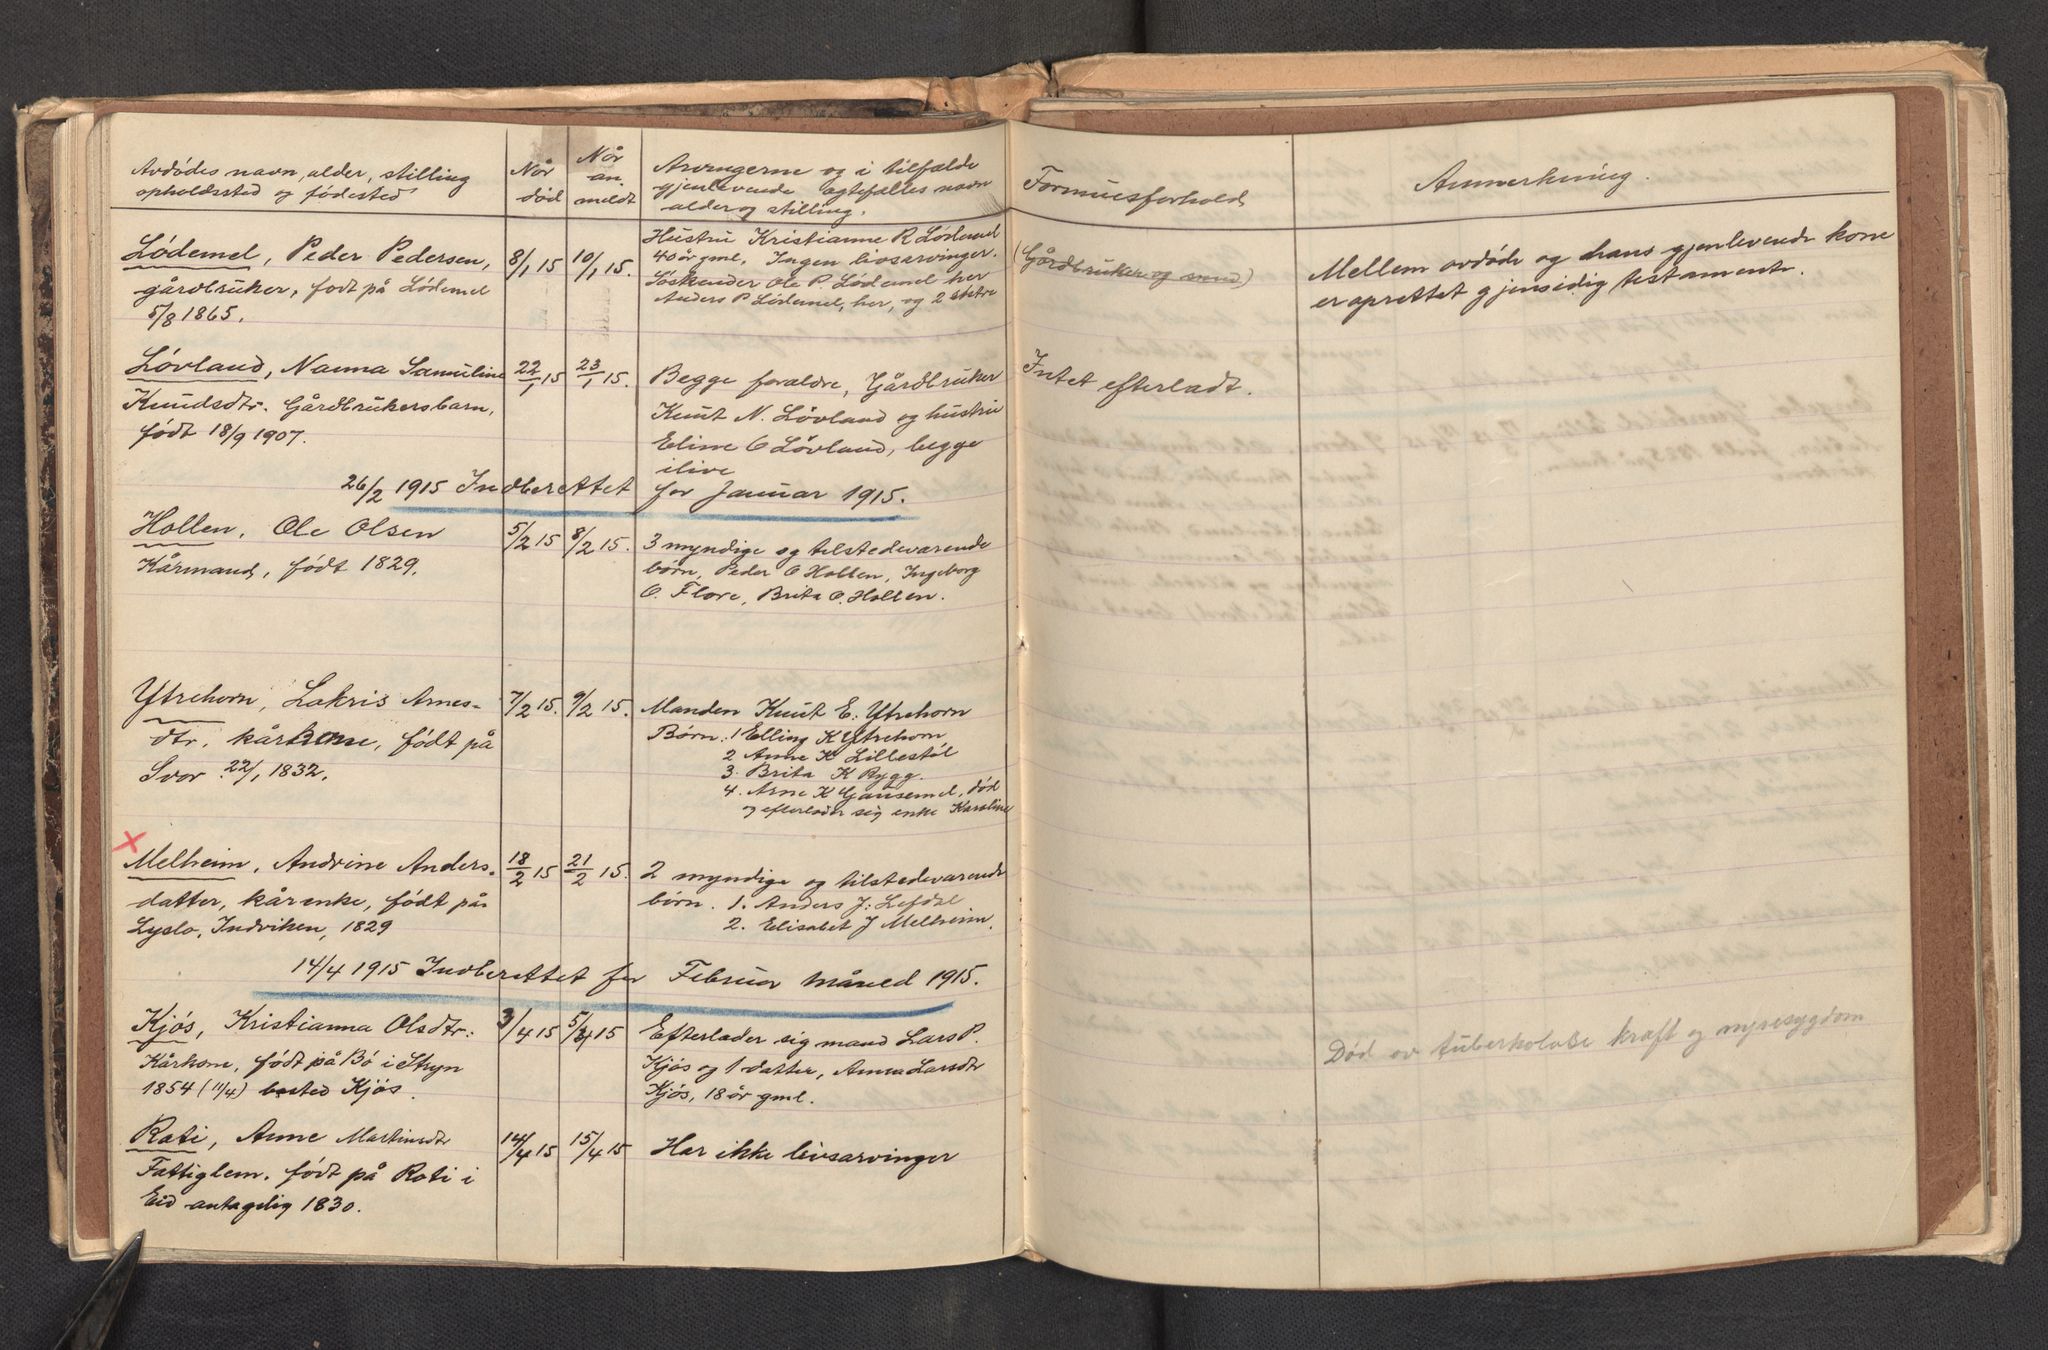 Avdødes navn, alder, stilling
opholdssted og fødested
Når
død
Når
an.
meldt
Arvingerne og i tilfælde
gjenlevende ægtefælles navn
alder og stilling.
Formuesforhold
Anmerkning.
Lødemel, Peder Pedersen,
gårdbruker, født på Lødemel
5/8 1865.
8/1 15
10/1 15.
Hustru Kristianne R Lødemel
40 år gml. Ingen livsarvinger.
Søskender Ole P. Lødemel her
Anders P Lødemel, her, og 2 
(Gårdbruker og )
Mellem avdøde og hans gjenlevende kone
er oprettet gjensidig testamente.
Løvland, Nanna Samuline
Knudsdtr. Gårdbrukersbarn,
født 18/9 1907.
22/1 15
23/1 15.
Begge forældre, Gårdbruker
Knut N. Løvland og hustru
Eline O Løvland, begge
ilive
Intet efterladt.
26/2 1915 Indberettet for Januar 1915.
Hollen, Ole Olsen
Kårmand, født 1829.
5/2 15
8/2 15.
3 myndige og tilstedeværende
børn, Peder O Hollen, Ingeborg
O. Flore, Brita O. Hollen.
Ytrehorn, Lakris Arnes-
dtr. kårkone, født på
Svor 22/1 1832.
7/2 15.
9/2 15.
Manden Knut E. Ytrehorn
Børn: 1 Elling K Ytrehorn
2 Anne K Lillestøl
3. Brita K Rygg.
4. Arne K Gausemel, død
og efterlader sig enke Karoline
Melheim, Andrine Anders-
datter, kårenke, født på
Lyslo, Indviken, 1829
18/2 15
21/2 15.
2 myndige og tilstedeværende
børn. 1. Anders J. Lefdal
2. Elisabet J Melheim.
14/4 1915 Indberettet for Februar måned 1915.
Kjøs, Kristianna Olsdtr.
Kårkone, født på Bø i Stryn
1854 (11/4) bosted Kjøs.
3/4 15
5/4 15
Efterlader sig mand Lars P.
Kjøs og 1 datter, Anna Larsdtr
Kjøs, 18 år gml.
Død av tuberkoløse kræft og nyresygdom
Roti, Anne Martinsdtr
Fattiglem. født på Roti i
Eid antagelig 1830.
14/4 15
15/4 15
Har ikke livsarvinger